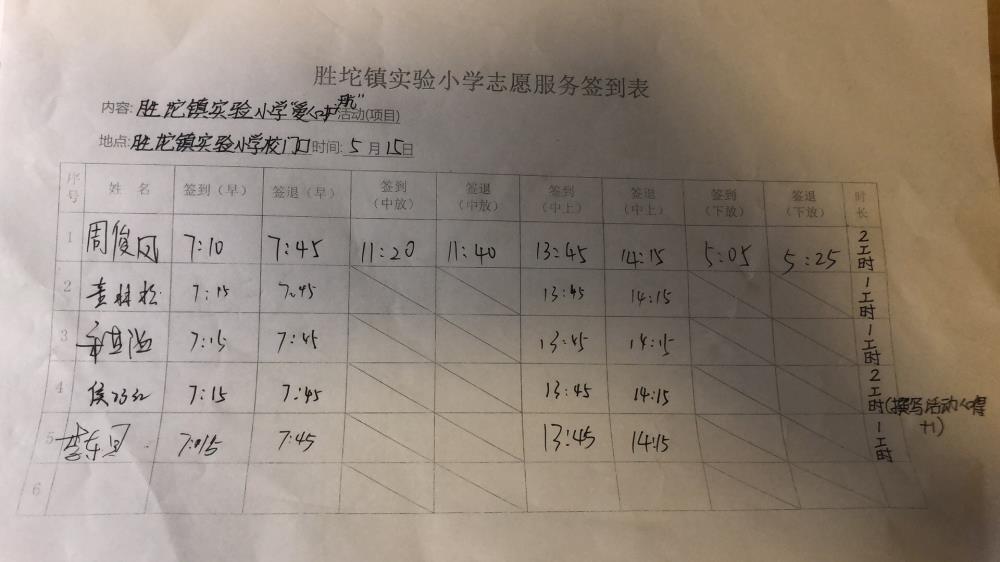 胜坨镇实验小学志愿服务签到表
内容: 胜坨镇实验小学"爱心护航"活动(项目)
地点: 胜坨镇实验小学校门口 时间: 5月15日
序号 姓名 签到(早) 签退(早) 签到(中放) 签退(中放) 签到(中上) 签退(中上) 签到(下放) 签退(下放) 时长
1 周俊凤 7:10 7:45 11:20 11:40 13:45 14:15 5:05 5:25 2工时
2 7:15 7:45 13:45 14:15 1工时
3 7:15 7:45 13:45 14:15 1工时
4 侯 7:15 7:45 13:45 14:15 2工时(撰写活动心得+1)
5 李东 7:15 7:45 13:45 14:15 1工时
6